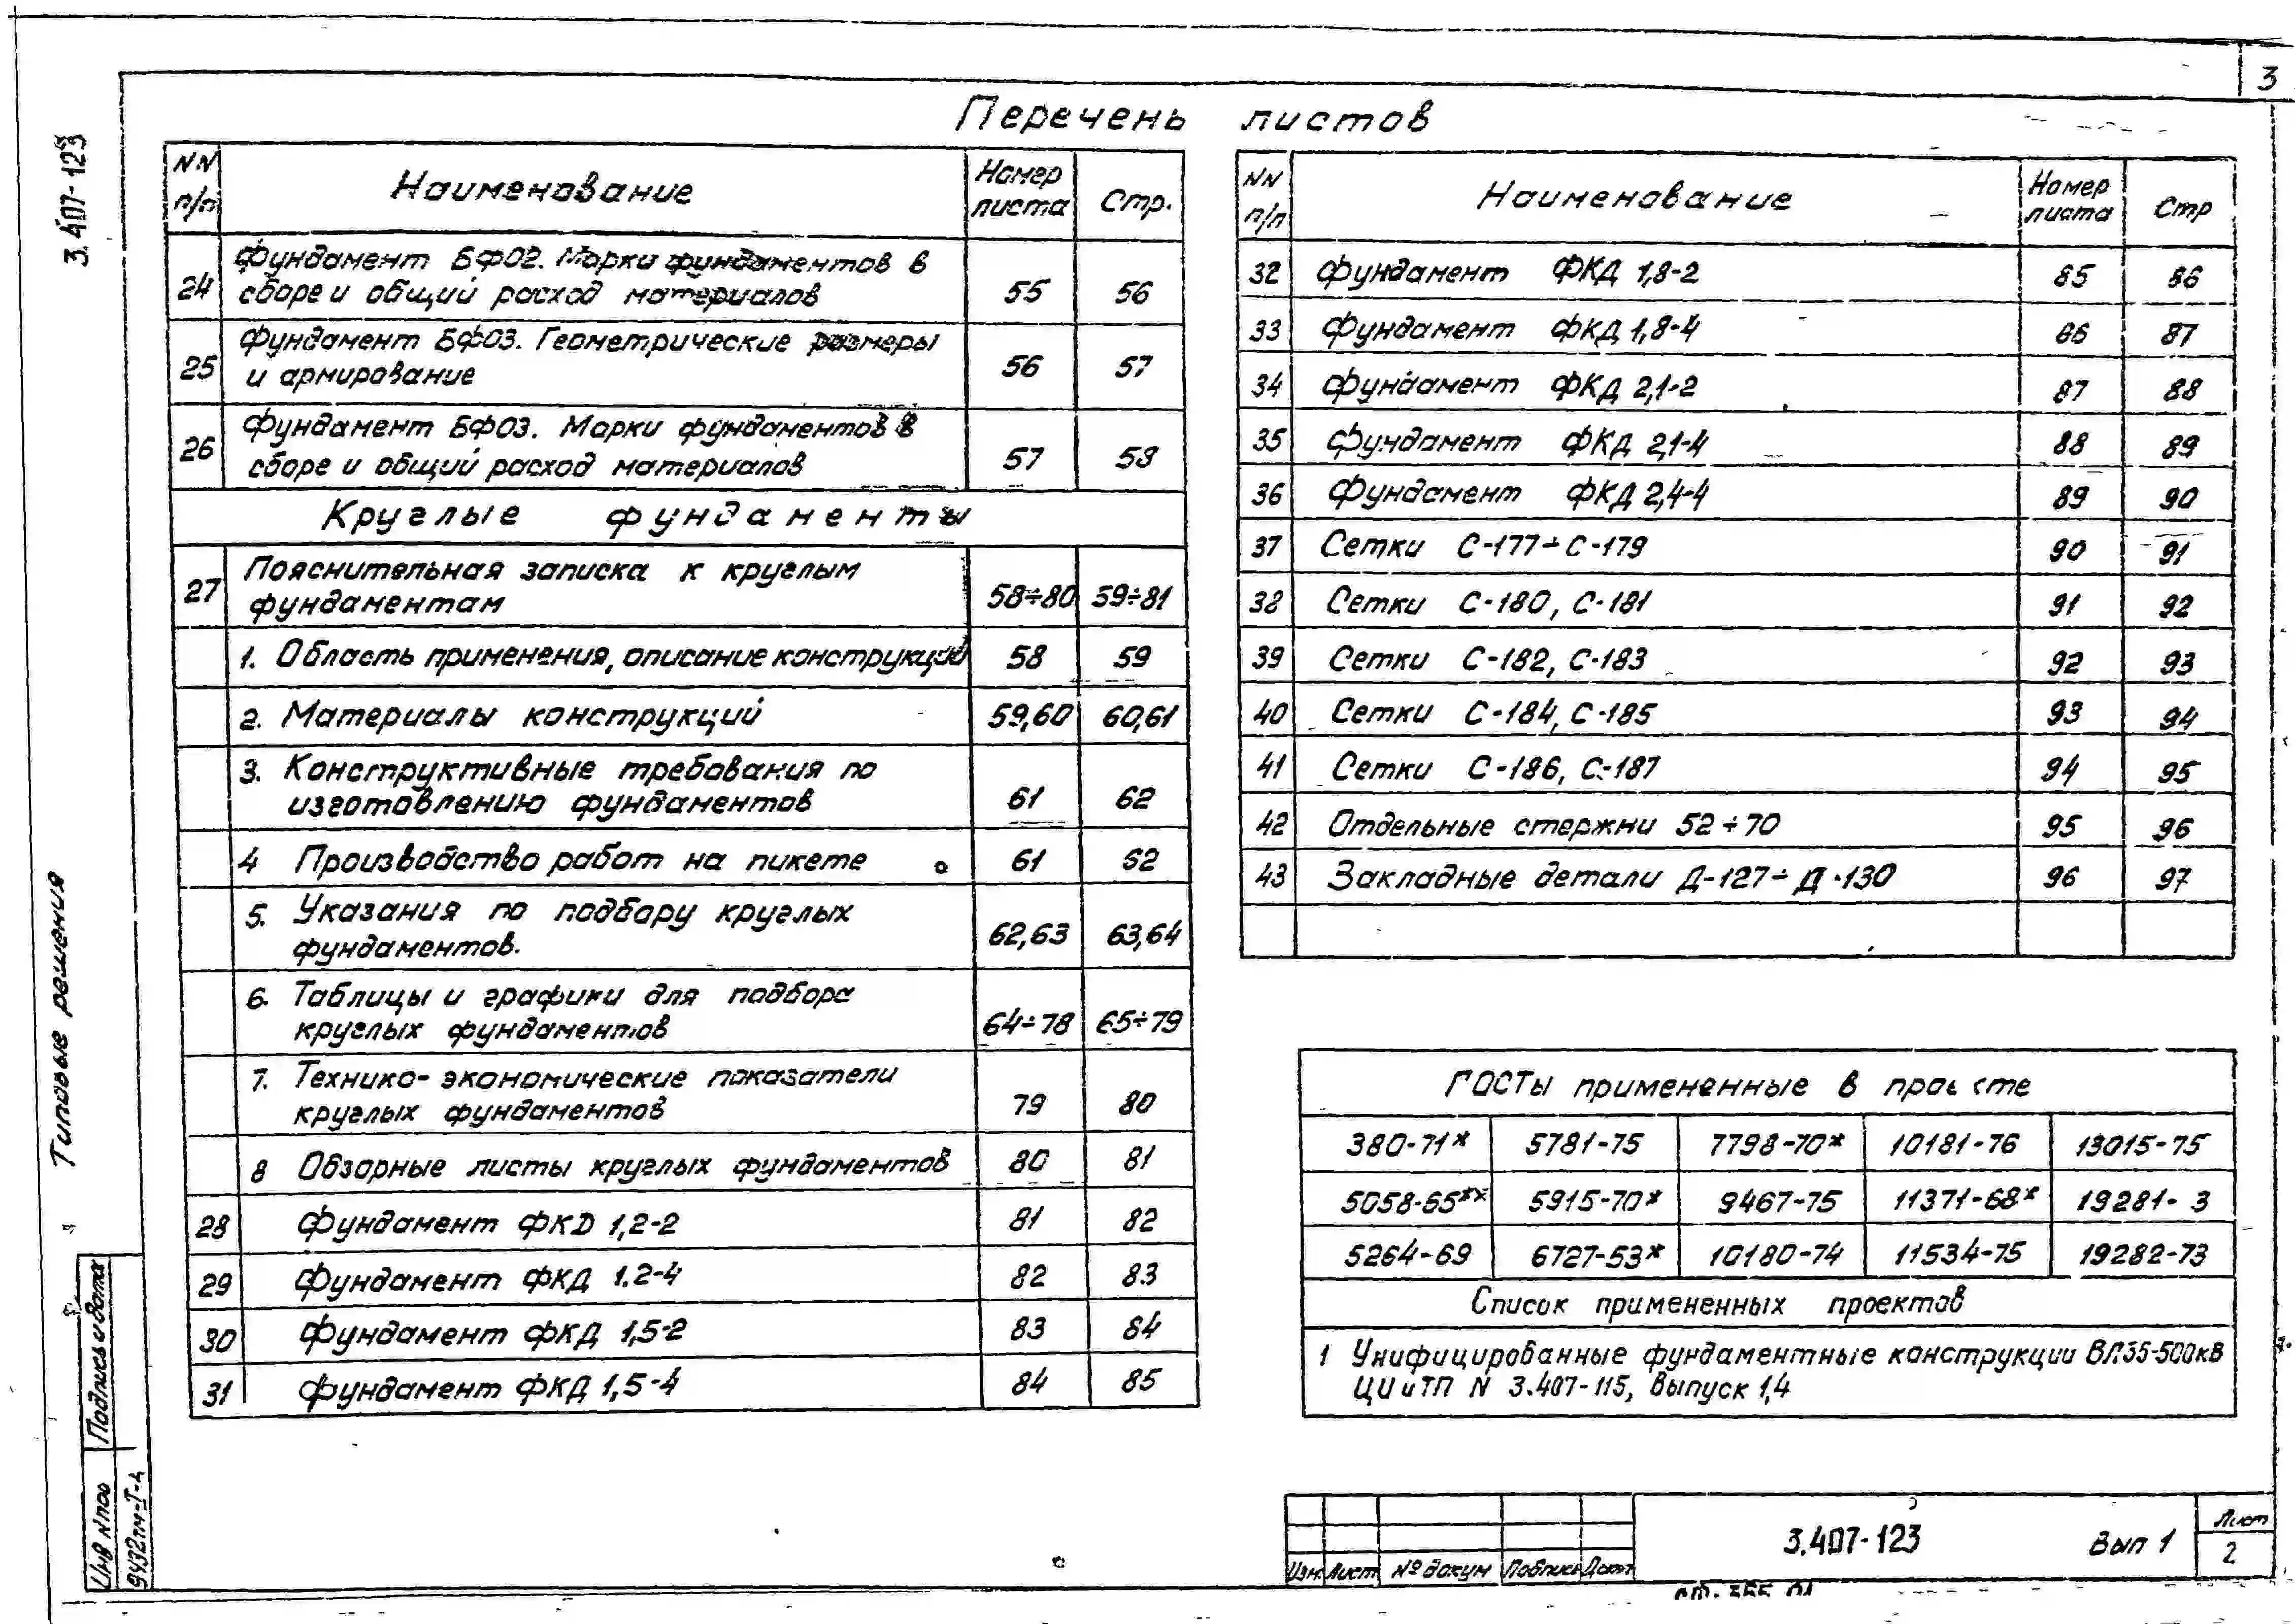 3
3.407-123
Типовые решения
Перечень листов
NN п/п Наименование Номер листа Стр.
24 Фундамент БФ02. Марки фундаментов в
сборе и общий расход материалов 55 56
25 Фундамент БФ03. Геометрические размеры
и армирование 56 57
26 Фундамент БФ03. Марки фундаментов в
сборе и общий расход материалов 57 58
Круглые фундаменты
27 Пояснительная записка к круглым
фундаментам 58÷80 59÷81
1. Область применения, описание конструкций 58 59
2. Материалы конструкций 59,60 60,61
3. Конструктивные требования по
изготовлению фундаментов 61 62
4 Производство работ на пикете 61 62
5. Указания по подбору круглых
фундаментов. 62,63 63,64
6. Таблицы и графики для подбора
круглых фундаментов 64÷78 65÷79
7. Технико-экономические показатели
круглых фундаментов 79 80
8 Обзорные листы круглых фундаментов 80 81
28 Фундамент ФКD 1,2-2 81 82
29 Фундамент ФКД 1.2-4 82 83
30 Фундамент ФКД 1,5-2 83 84
31 Фундамент ФКД 1,5-4 84 85
NN п/п Наименование Номер листа Стр
32 Фундамент ФКД 1,8-2 85 86
33 Фундамент ФКД 1,8-4 86 87
34 Фундамент ФКД 2,1-2 87 88
35 Фундамент ФКД 2,1-4 88 89
36 Фундамент ФКД 2,4-4 89 90
37 Сетки С-177÷С-179 90 91
38 Сетки С-180, С-181 91 92
39 Сетки С-182, С-183 92 93
40 Сетки С-184, С-185 93 94
41 Сетки С-186, С-187 94 95
42 Отдельные стержни 52÷70 95 96
43 Закладные детали Д-127÷Д-130 96 97
ГОСТы примененные в проекте
380-71* 5781-75 7798-70* 10181-76 13015-75
5058-65** 5915-70* 9467-75 11371-68* 19281- 3
5264-69 6727-53* 10180-74 11534-75 19282-73
Список примененных проектов
1 Унифицированные фундаментные конструкции ВЛ35-500кВ
ЦИиТП N 3.407-115, выпуск 1,4
Подпись и дата
Инв N под
9432тм-I-4
Изм. Лист № докум Подпись Дата
3.407-123 Вып 1
Лист
2